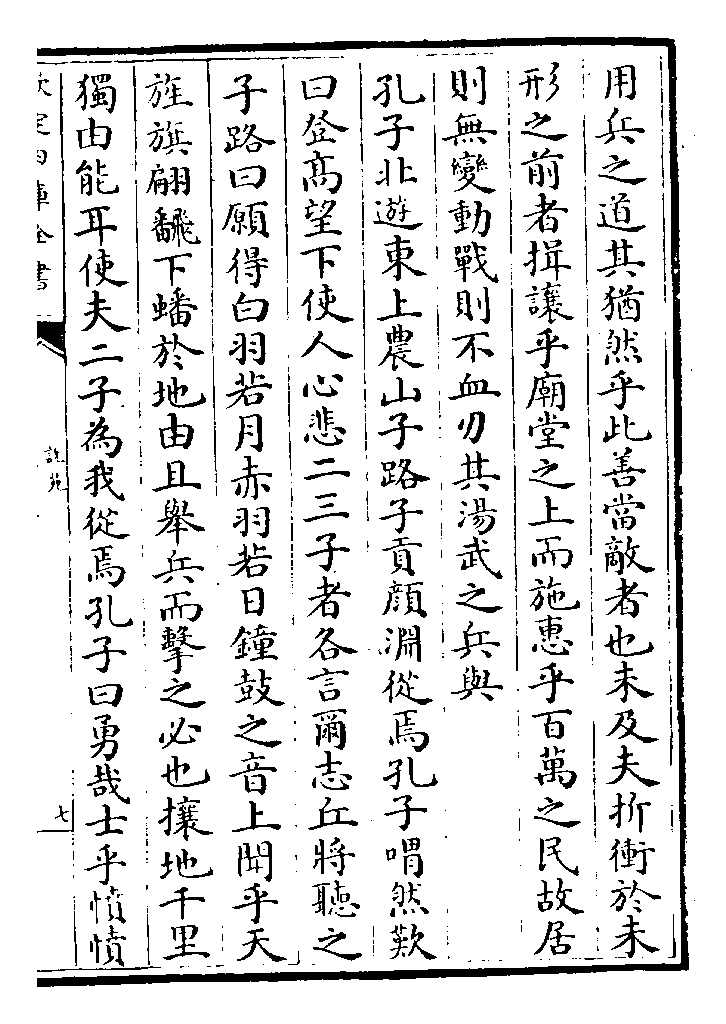 用兵之道其猶然乎此善當敵者也未及夫折衝於未
形之前者揖讓乎廟堂之上而施惠乎百萬之民故居
則無變動戰則不血刃其湯武之兵與
孔子北遊東上農山子路子貢顔淵從焉孔子喟然歎
曰登髙望下使人心悲二三子者各言爾志丘將聽之
子路曰願得白羽若月赤羽若日鐘鼓之音上聞乎天
旌旗翩飜下蟠於地由且舉兵而擊之必也攘地千里
獨由能耳使夫二子為我從焉孔子曰勇哉士乎憤憤
欽定四庫全書
說苑
七